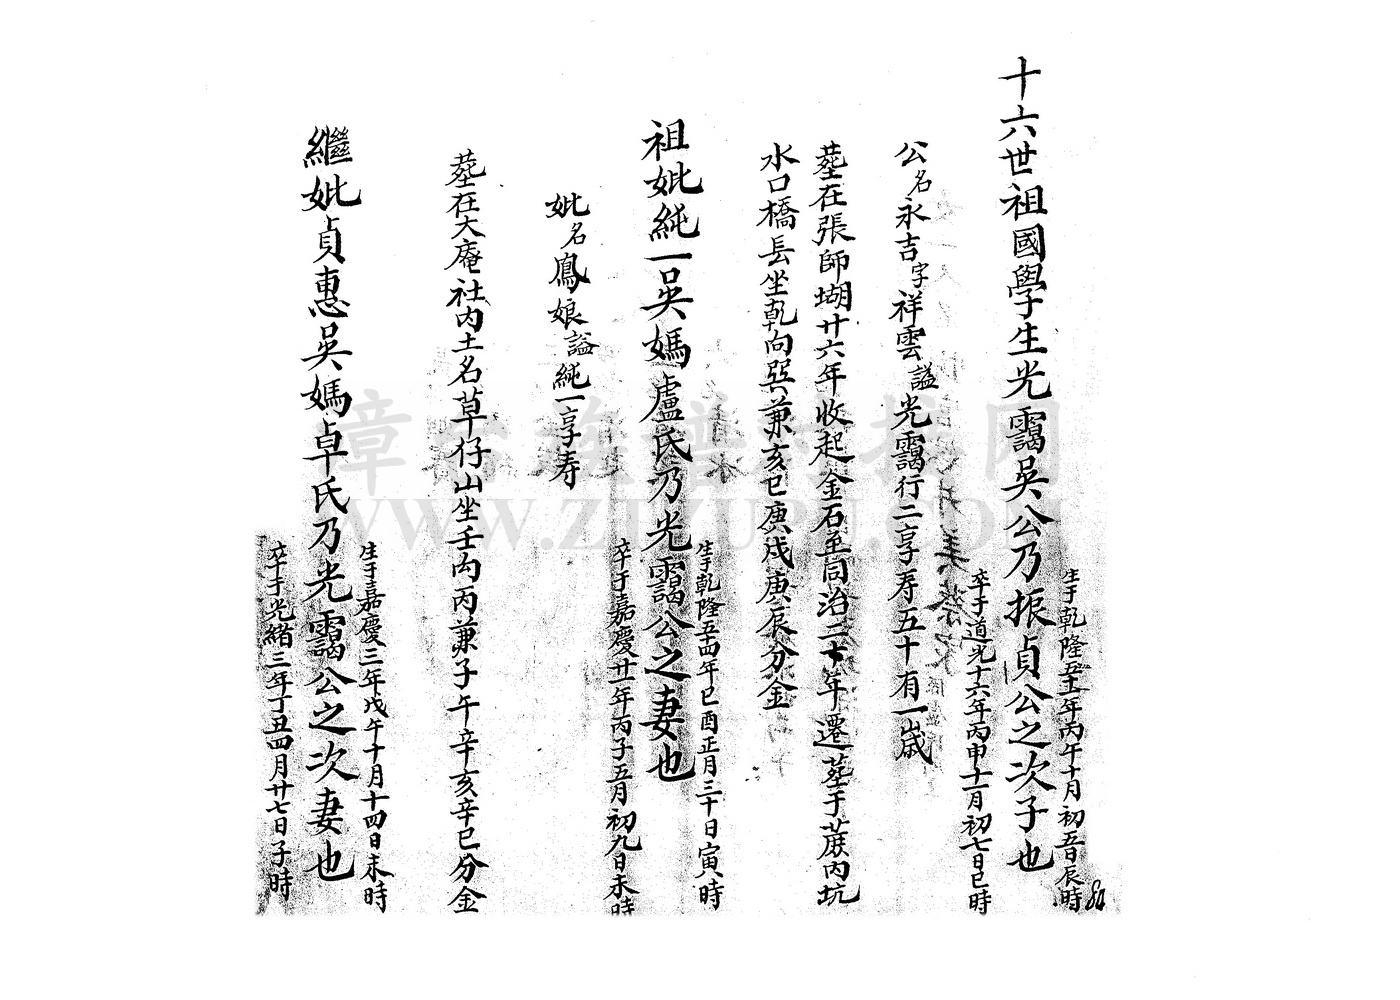 十六世祖國學生光靄吳公乃振貞公之次子也
生于乾隆五十一年丙午十月初五日辰時
卒于道光十六年丙申十一月初七日巳時
公名永吉字祥雲謚光靄行二享寿五十有一歲
塟在張師坳廿六年收起金石至同治二年遷塟于蔗內坑
水口橋長坐乾向巽兼亥巳庚戌庚辰分金
祖妣純一吳媽盧氏乃光靄公之妻也
生于乾隆五十四年己酉正月三十日寅時
卒于嘉慶廿一年丙子五月初九日未時
妣名鳳娘謚純一享寿
塟在大庵社內土名草仔山坐壬向丙兼子午辛亥辛巳分金
繼妣貞惠吳媽卓氏乃光靄公之次妻也
生于嘉慶三年戊午十月十四日未時
卒于光緒三年丁丑四月廿七日子時
WWW.ZTZUPU.COM